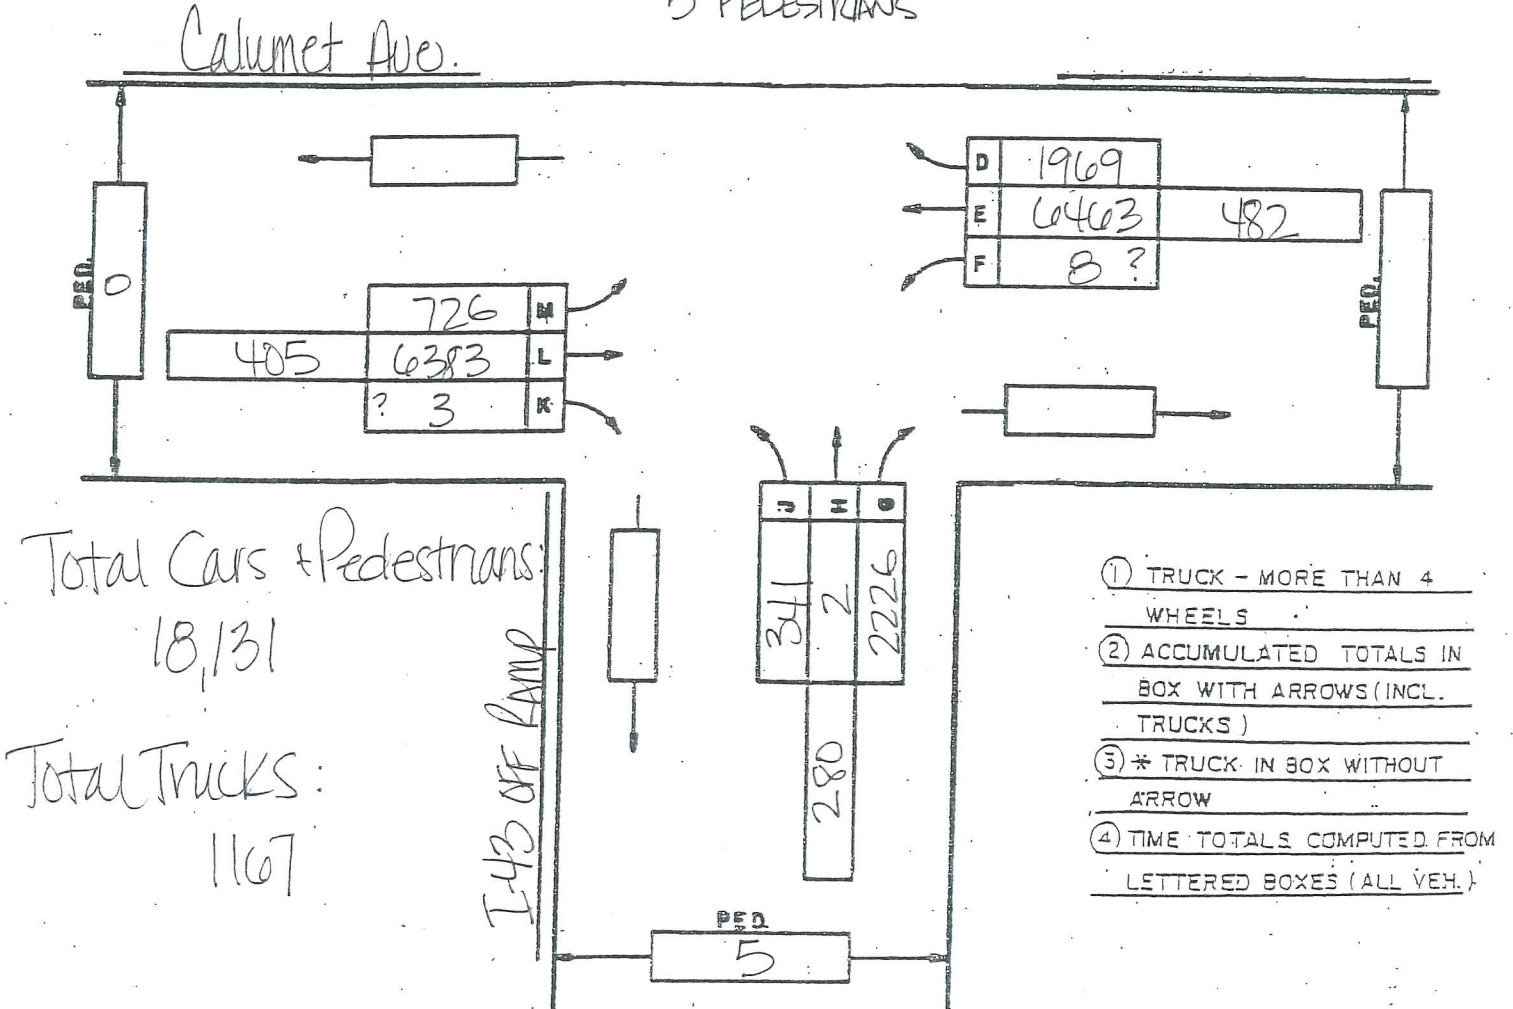 5 PEDESTRIANS
Calumet Ave.
D 1969
E 6463 482
F 8 ?
PED.
0
726 M
405 6383 L
? 3 K
PED.
J H G
341 2 2226
280
Total Cars + Pedestrians:
18,131
Total Trucks:
1167
I-43 OFF RAMP
PED
5
① TRUCK - MORE THAN 4
WHEELS
② ACCUMULATED TOTALS IN
BOX WITH ARROWS (INCL.
TRUCKS)
③ * TRUCK IN BOX WITHOUT
ARROW
④ TIME TOTALS COMPUTED FROM
LETTERED BOXES (ALL VEH.)